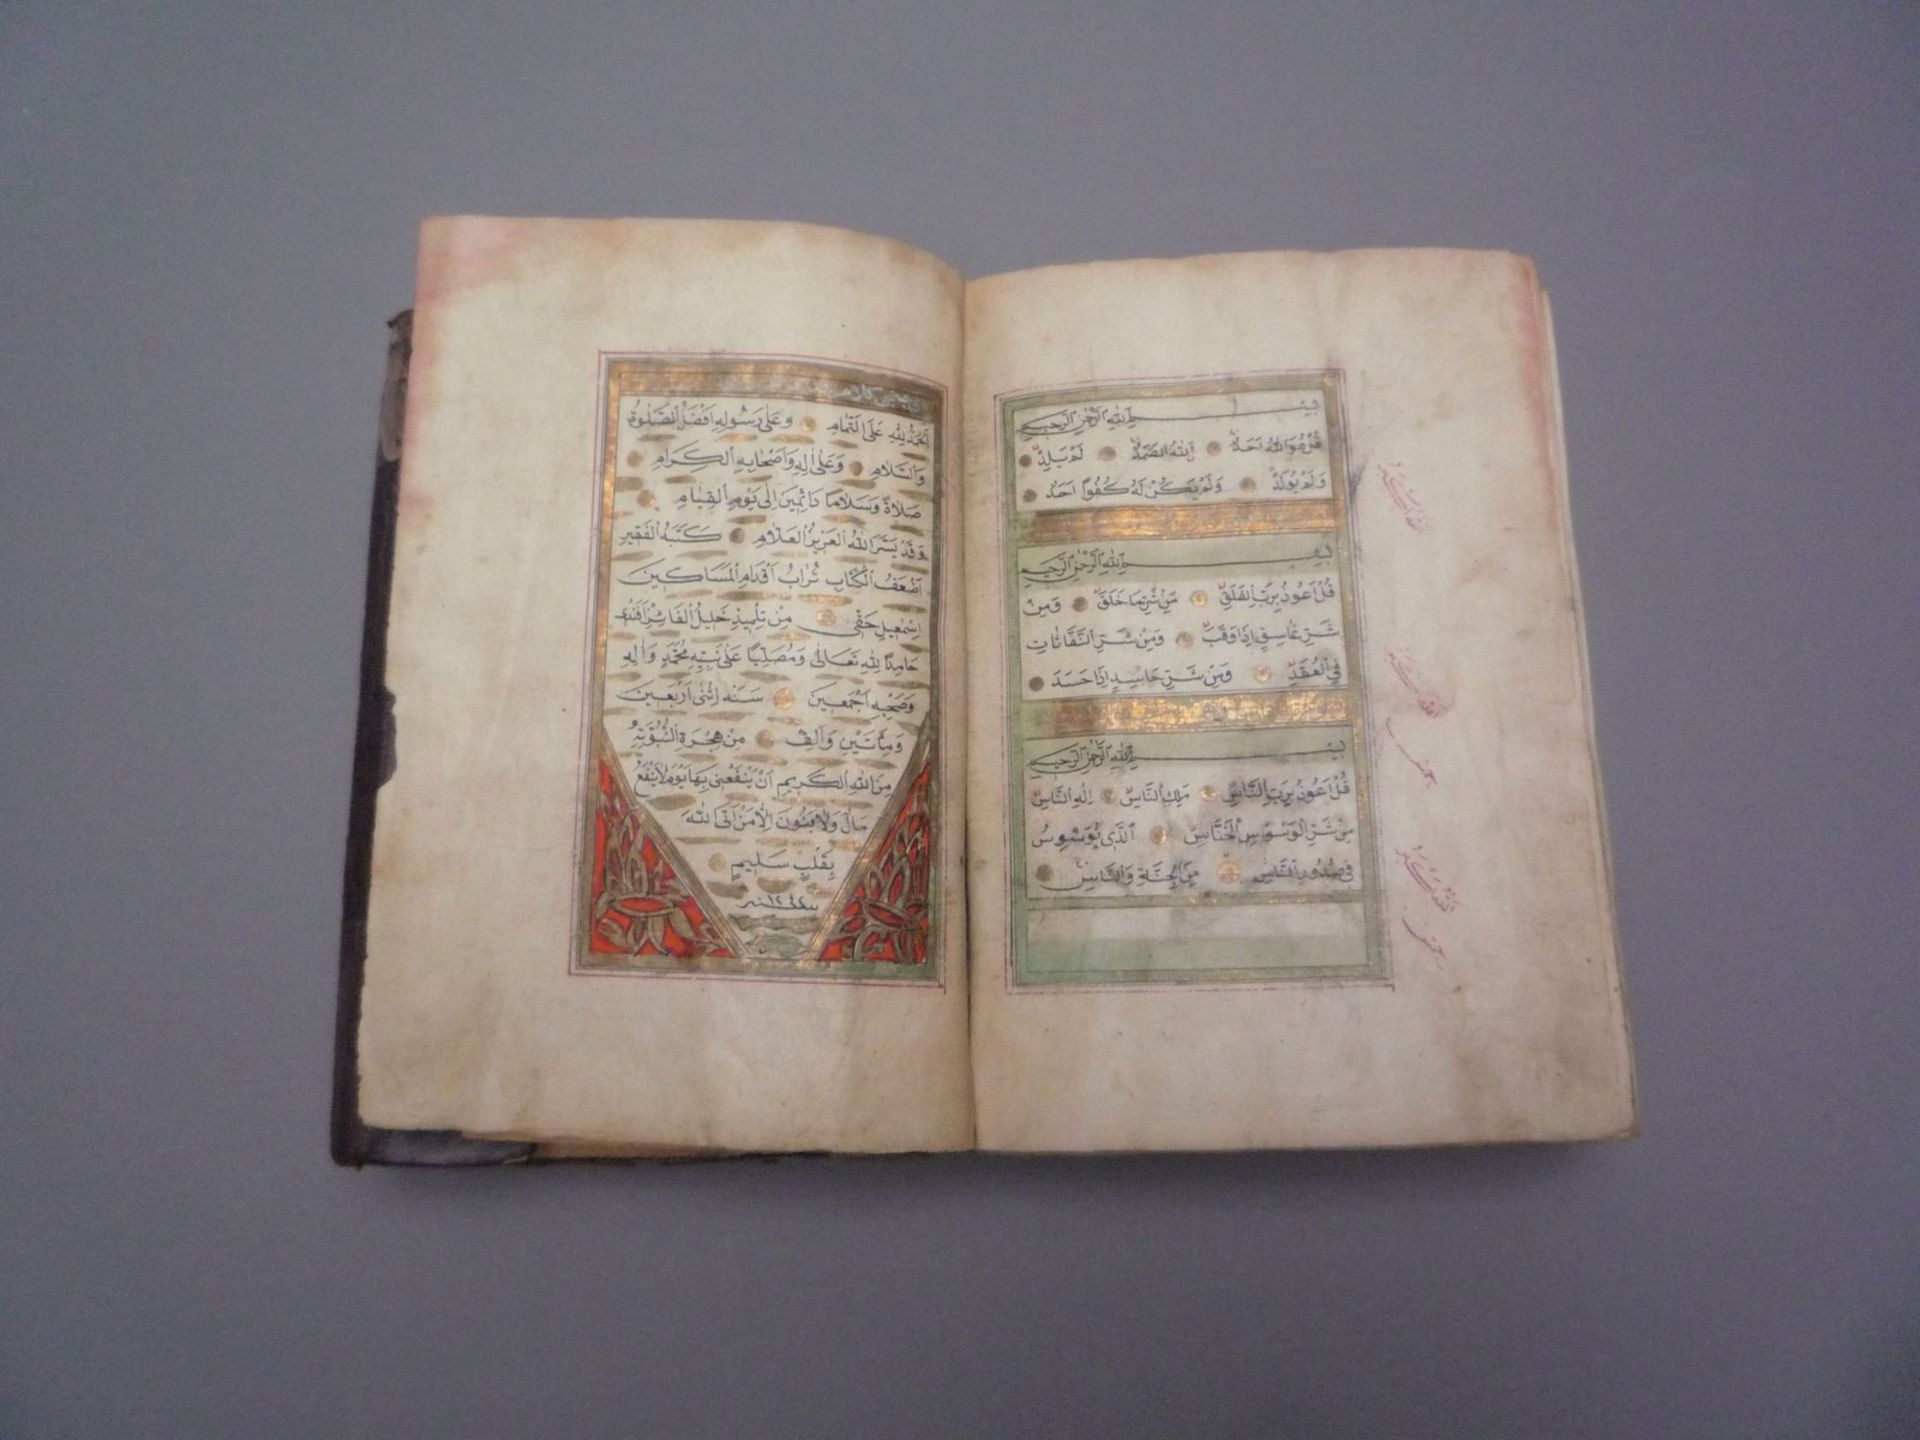 بِسْمِ ٱللّٰهِ ٱلرَّحْمٰنِ ٱلرَّحِيمِ
قُلْ هُوَ اللّٰهُ اَحَدٌ اَللّٰهُ الصَّمَدُ لَمْ يَلِدْ
وَلَمْ يُولَدْ وَلَمْ يَكُنْ لَهُ كُفُوًا اَحَدٌ
بِسْمِ ٱللّٰهِ ٱلرَّحْمٰنِ ٱلرَّحِيمِ
قُلْ اَعُوذُ بِرَبِّ الْفَلَقِ مِنْ شَرِّ مَا خَلَقَ وَمِنْ
شَرِّ غَاسِقٍ اِذَا وَقَبَ وَمِنْ شَرِّ النَّفَّاثَاتِ
فِي الْعُقَدِ وَمِنْ شَرِّ حَاسِدٍ اِذَا حَسَدَ
بِسْمِ ٱللّٰهِ ٱلرَّحْمٰنِ ٱلرَّحِيمِ
قُلْ اَعُوذُ بِرَبِّ النَّاسِ مَلِكِ النَّاسِ اِلٰهِ النَّاسِ
مِنْ شَرِّ الْوَسْوَاسِ الْخَنَّاسِ اَلَّذِي يُوَسْوِسُ
فِي صُدُورِ النَّاسِ مِنَ الْجِنَّةِ وَالنَّاسِ
اَلْحَمْدُ لِلّٰهِ عَلَى التَّمَامِ وَعَلٰى رَسُولِهِ اَفْضَلُ الصَّلٰوةِ
وَالسَّلَامِ وَعَلٰى اٰلِهِ وَاَصْحَابِهِ الْكِرَامِ
صَلَاةً وَسَلَامًا دَائِمَيْنِ اِلٰى يَوْمِ الْقِيَامِ
وَقَدْ يَسَّرَ اللّٰهُ الْعَزِيزُ الْعَلَّامِ كَتَبَهُ الْفَقِيرِ
اَضْعَفُ الْكُتَّابِ تُرَابُ اَقْدَامِ الْمَسَاكِينَ
اِسْمٰعِيل حَقِّى مِنْ تِلْمِيذِ خَلِيلُ الْفَائِزْ اَفَنْدِى
حَامِدًا لِلّٰهِ تَعَالٰى وَمُصَلِّيًا عَلٰى نَبِيِّهِ مُحَمَّدٍ وَاٰلِهِ
وَصَحْبِهِ اَجْمَعِينَ سَنَه اِثْنٰى اَرْبَعِينَ
وَمِأَتَيْنِ وَاَلْف مِنْ هِجْرَةِ النُّبُوَّتِهِ
مِنَ اللّٰهِ الْكَرِيمِ اَنْ يَنْفَعَنِى بِهَا يَوْمَ لَا يَنْفَعُ
مَالٌ وَلَا بَنُونَ اِلَّا مَنْ اَتَى اللّٰهَ
بِقَلْبٍ سَلِيمٍ
سنه ١٢٤٢